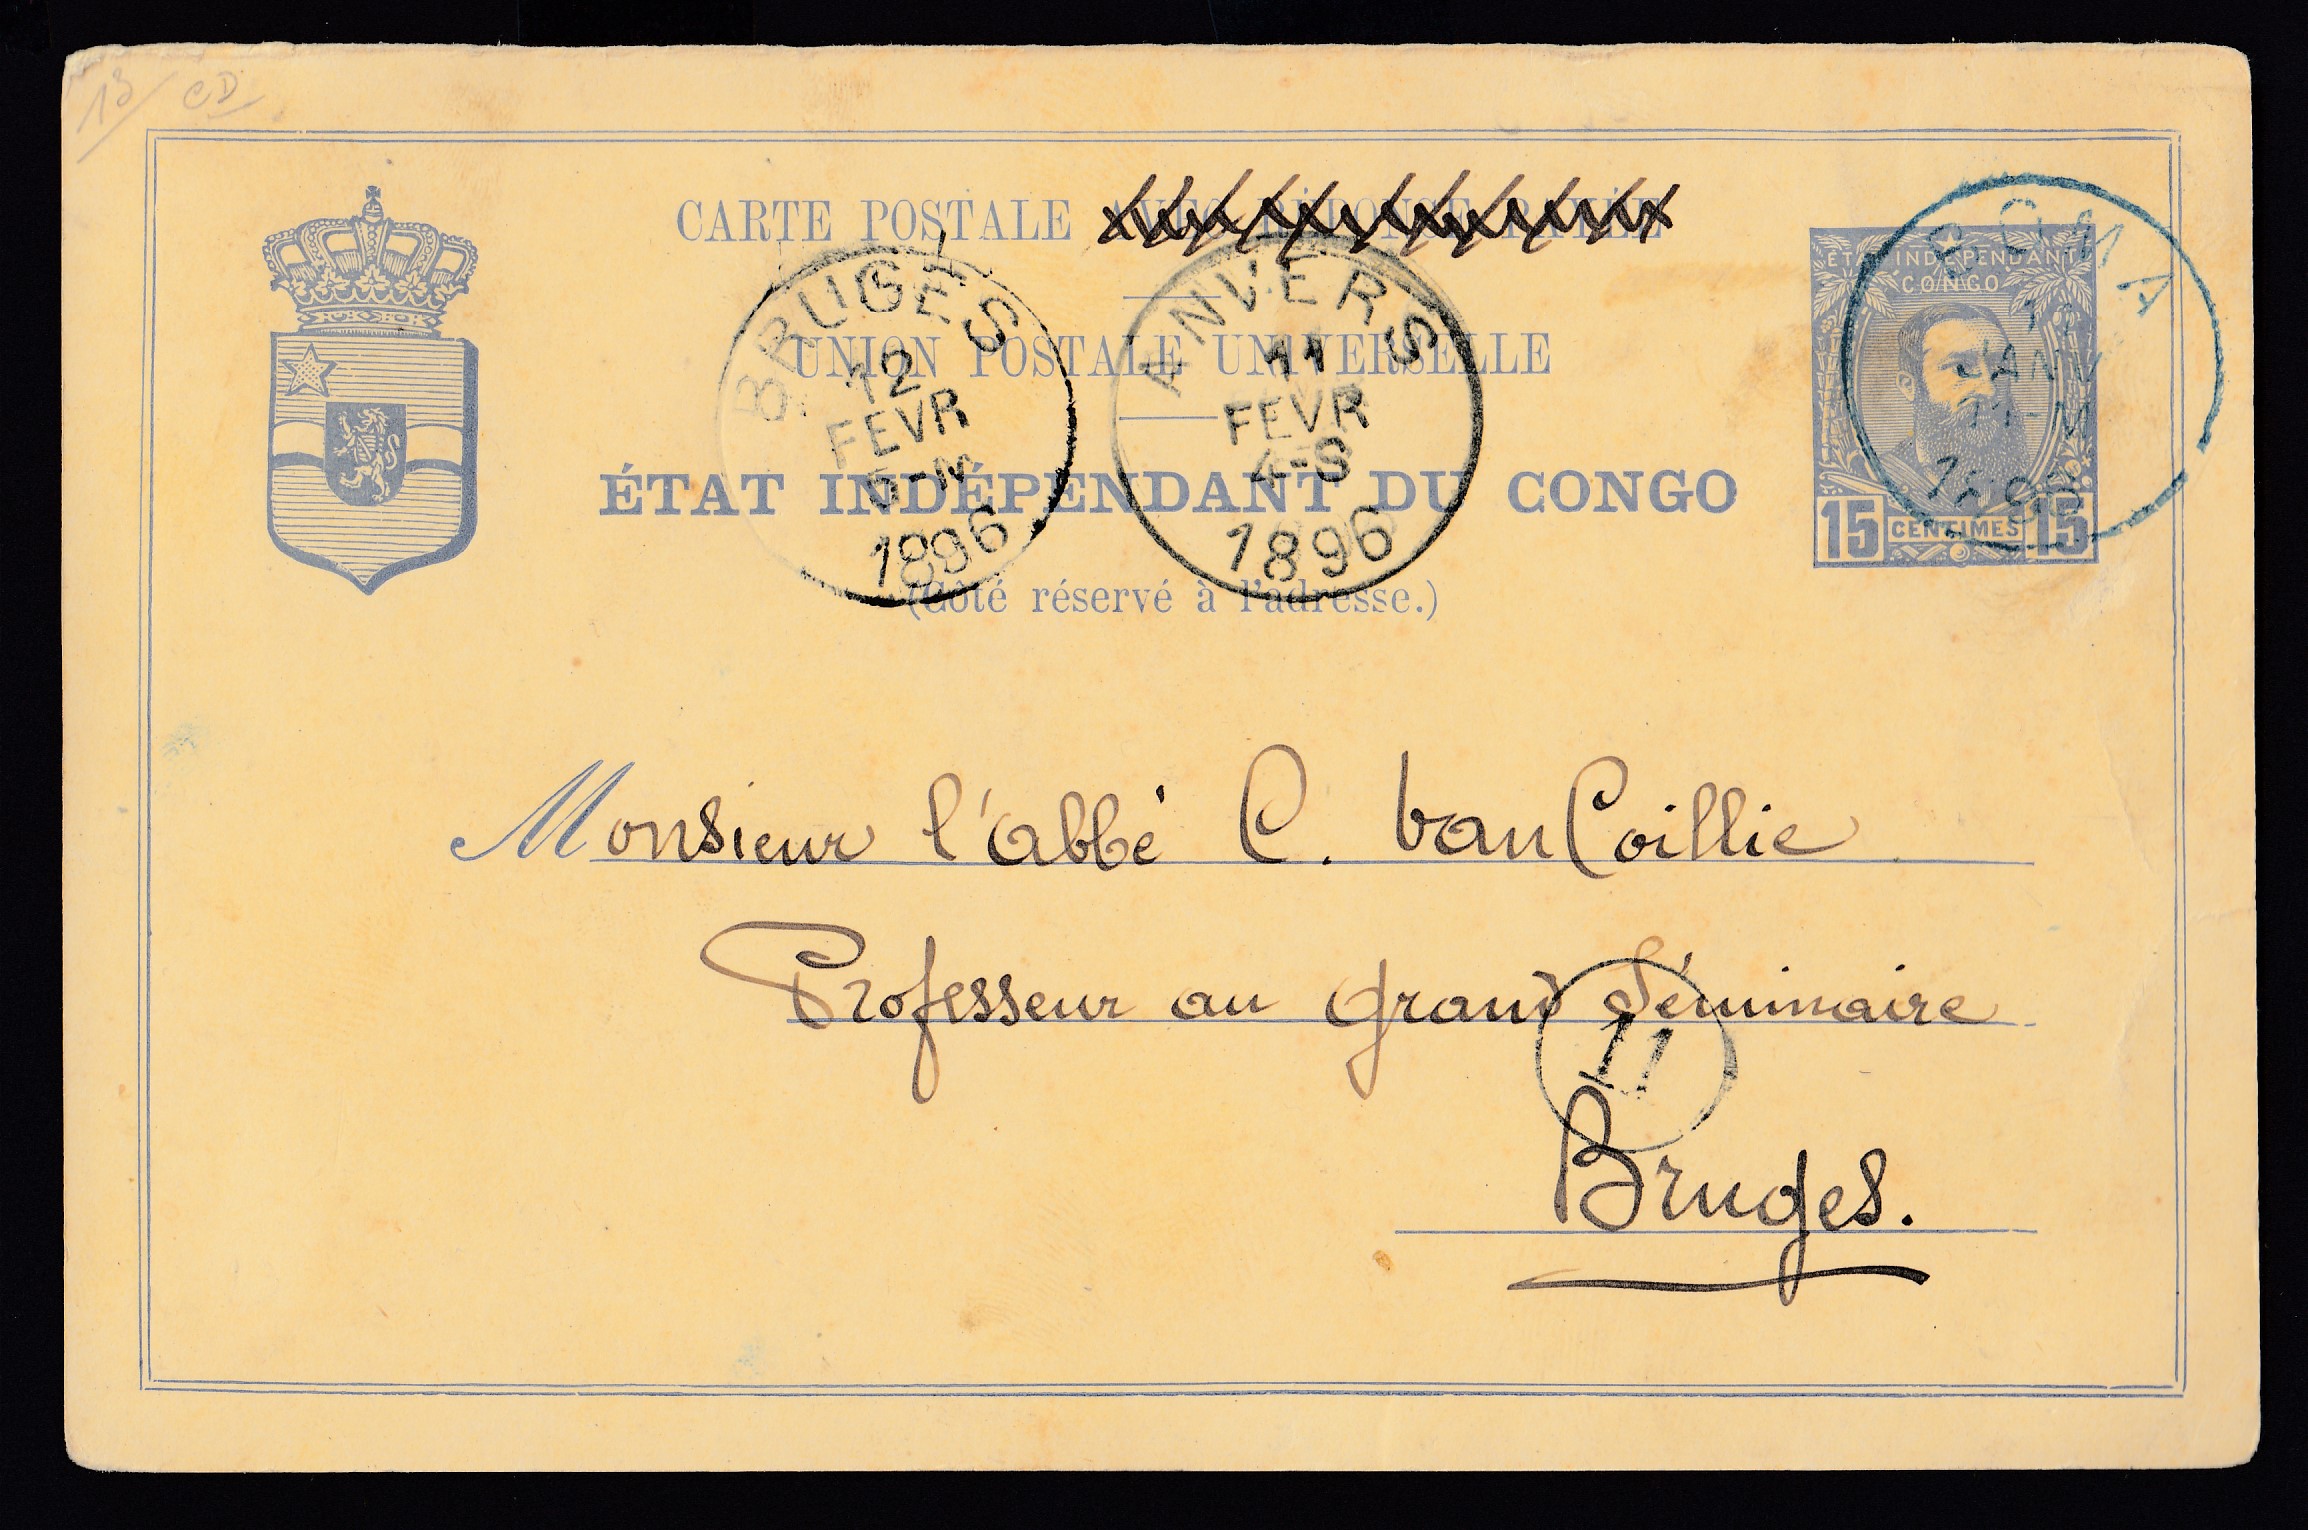 13/ CD
CARTE POSTALE AVEC RÉPONSE PAYÉE
UNION POSTALE UNIVERSELLE
ÉTAT INDÉPENDANT DU CONGO
(Côté réservé à l'adresse.)
BRUGES
12
FEVR
5-M
1896
ANVERS
11
FEVR
4-S
1896
ÉTAT INDÉPENDANT
CONGO
15 CENTIMES 15
BOMA
JANV
11-M
1896
Monsieur l'abbé C. van Coillie
Professeur au grand Séminaire
11
Bruges.